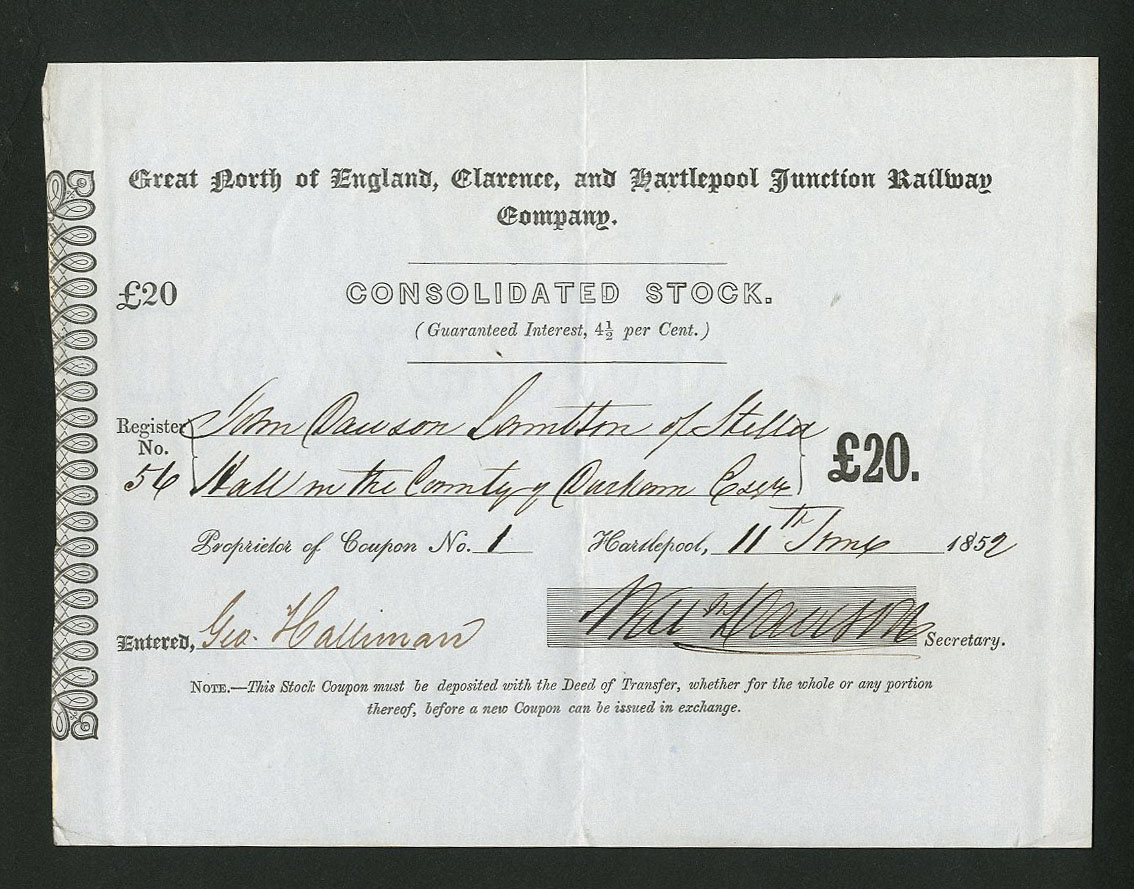 Great North of England, Clarence, and Hartlepool Junction Railway
Company.
£20
CONSOLIDATED STOCK.
(Guaranteed Interest, 4½ per Cent.)
Register
No.
56
John Dawson Lambton of Stella
Hall in the County of Durham Esqr
£20.
Proprietor of Coupon No. 1
Hartlepool, 11th June 1852
Entered, Geo. Halliman
Wm Dawson Secretary.
NOTE.—This Stock Coupon must be deposited with the Deed of Transfer, whether for the whole or any portion
thereof, before a new Coupon can be issued in exchange.